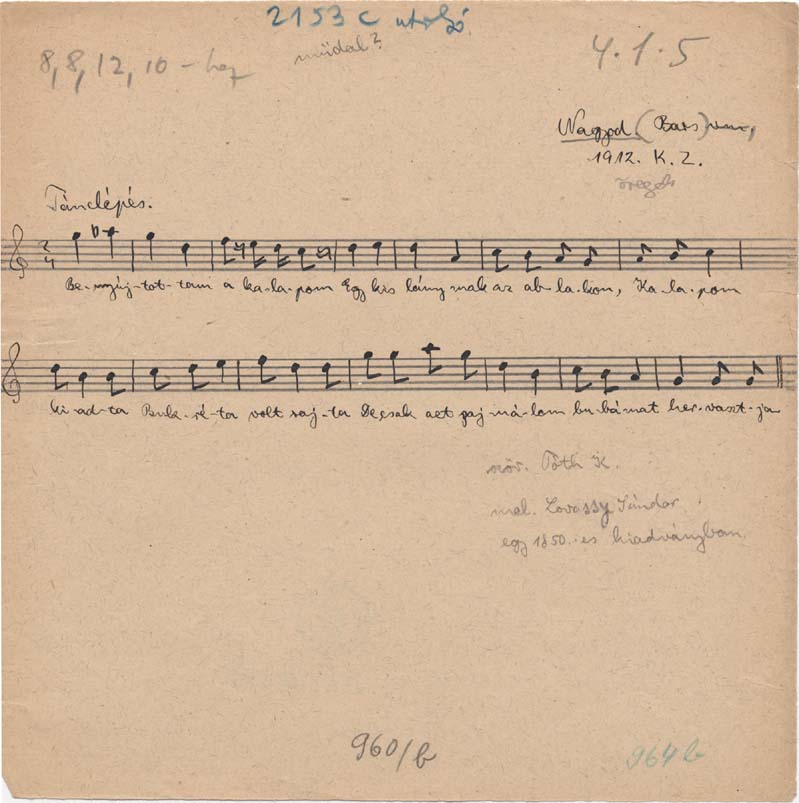 2153 c utolsó
műdal?
8, 8, 12, 10 - hez
4. 1. 5
Nagyod (Bars) vm,
1912. K. Z.
öregek
Tánclépés.
2/4
Be-nyúj-tot-tam a ka-la-pom Egy kis lány-nak az ab-la-kon, Ka-la-pom
ki-ad-ta Buk-ré-ta volt raj-ta De csak aet saj-ná-lom bu-bámat her-vaszt-ja
szöv. Tóth K.
mel. Lovassy Sándor
egy 1850.-es kiadványban
960/b
964 b